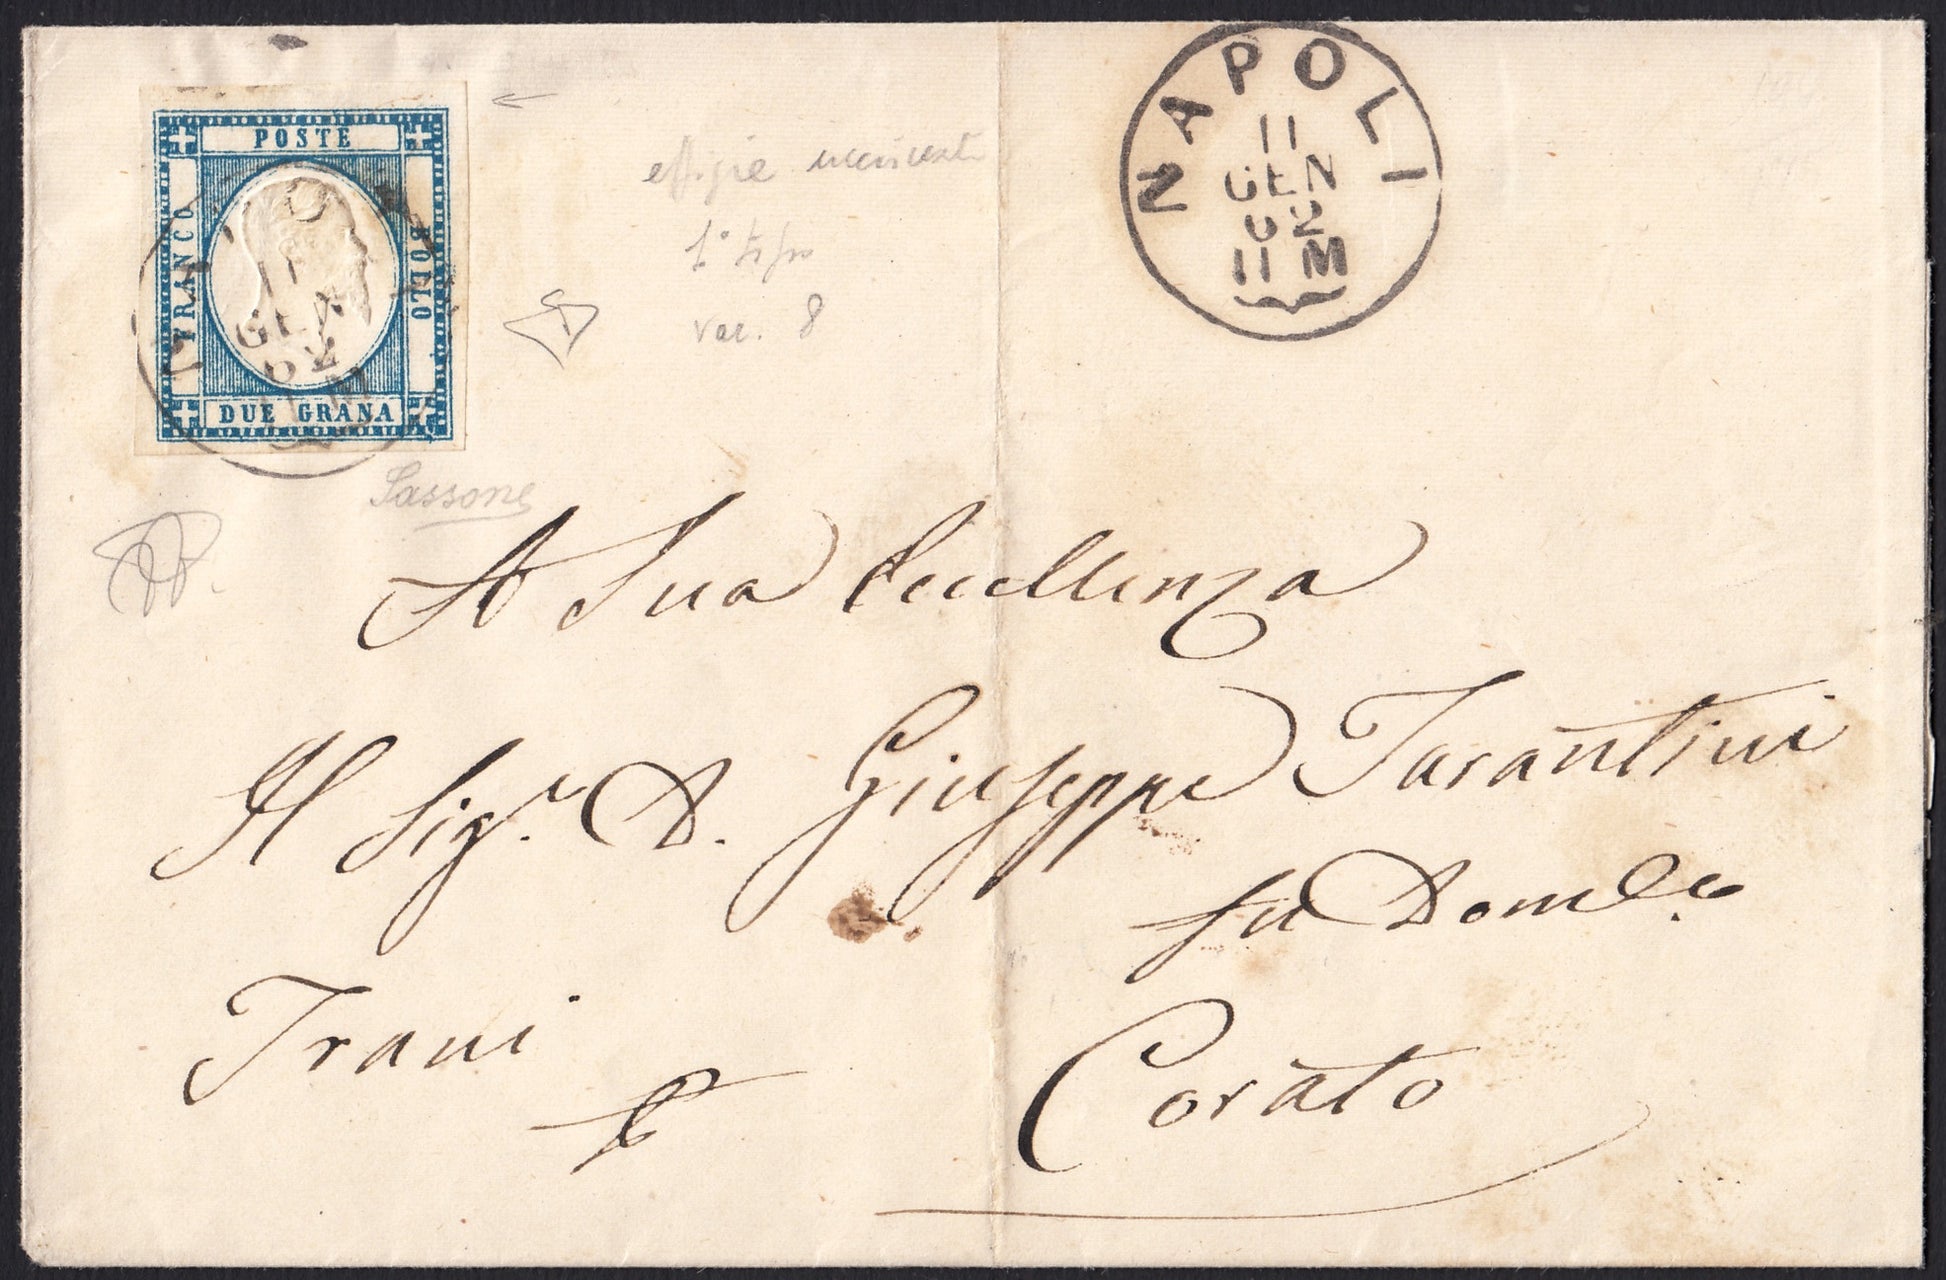 POSTE
FRANCO
BOLLO
DUE GRANA
NAPOLI
11
GEN
62
11 M
effigie
1° tipo
var. 8
Sassone
A Sua Eccellenza
Il Sig.r D. Giuseppe Tarantini
fu Dom.co
Trani
Corato